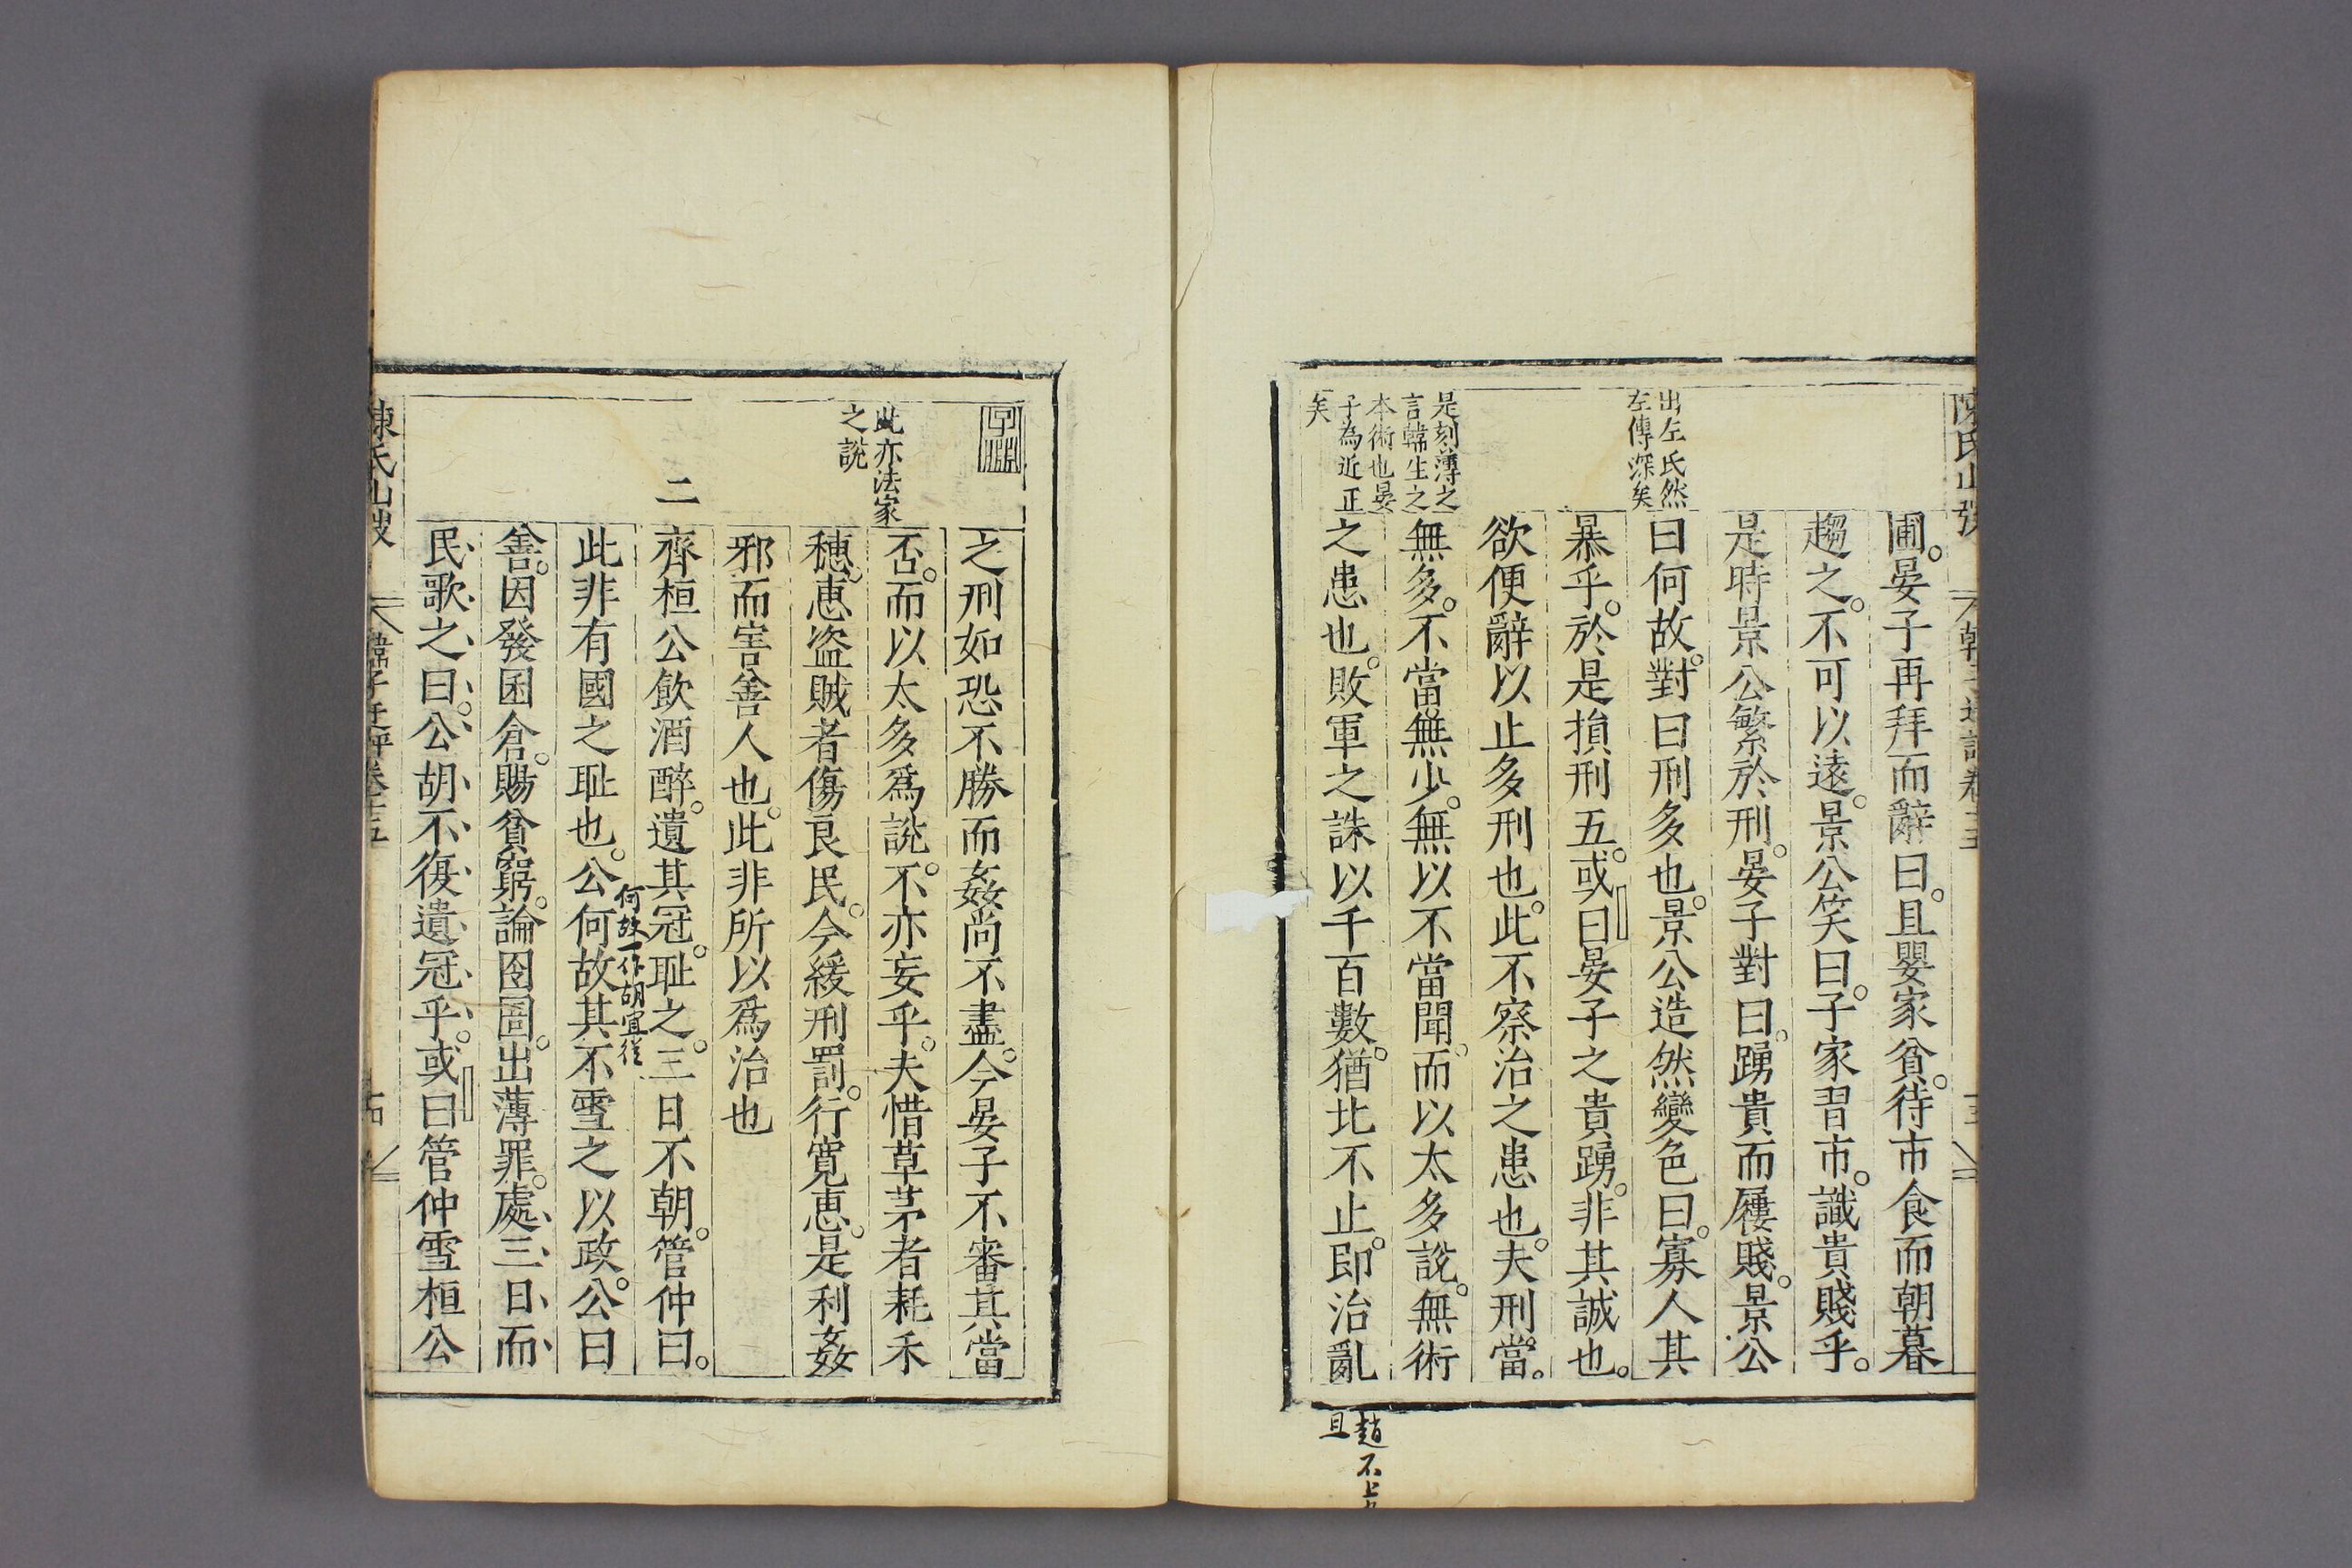 圃。晏子再拜而辭曰。且嬰家貧。待市食而朝暮
趨之。不可以遠。景公笑曰。子家習市。識貴賤乎。
是時景公繁於刑。晏子對曰。踴貴而屨賤。景公
曰何故。對曰刑多也。景公造然變色曰。寡人其
暴乎。於是損刑五。或曰晏子之貴踴。非其誠也。
欲便辭以止多刑也。此不察治之患也。夫刑當。
無多。不當。無少。無以不當聞。而以太多說。無術
之患也。敗軍之誅以千百數。猶北不止。即治亂
出左氏然
左傳深矣
是刻薄之
言韓生之
本術也晏
子為近正
矣
趙不上
且
之刑如恐不勝而姦尚不盡。今晏子不審其當
否。而以太多爲說。不亦妄乎。夫惜草茅者耗禾
穗。惠盜賊者傷良民。今緩刑罰。行寬惠。是利姦
邪而害善人也。此非所以爲治也
二
齊桓公飲酒醉。遺其冠。耻之。三日不朝。管仲曰。
何故一作胡宜從
此非有國之耻也。公何故其不雪之以政。公曰
善。因發囷倉。賜貧窮。論囹圄。出薄罪。處三日而
民歌之曰。公胡不復遺冠乎。或曰管仲雪桓公
此亦法家
之說
陳氏山
韓子迂評卷十五